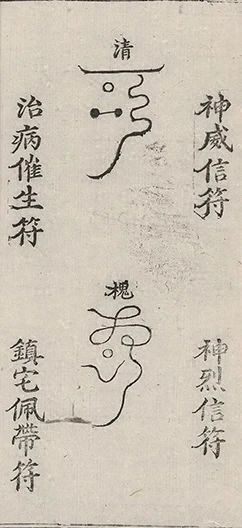 神威信符
清
治病催生符
神烈信符
槐
鎮宅佩帶符